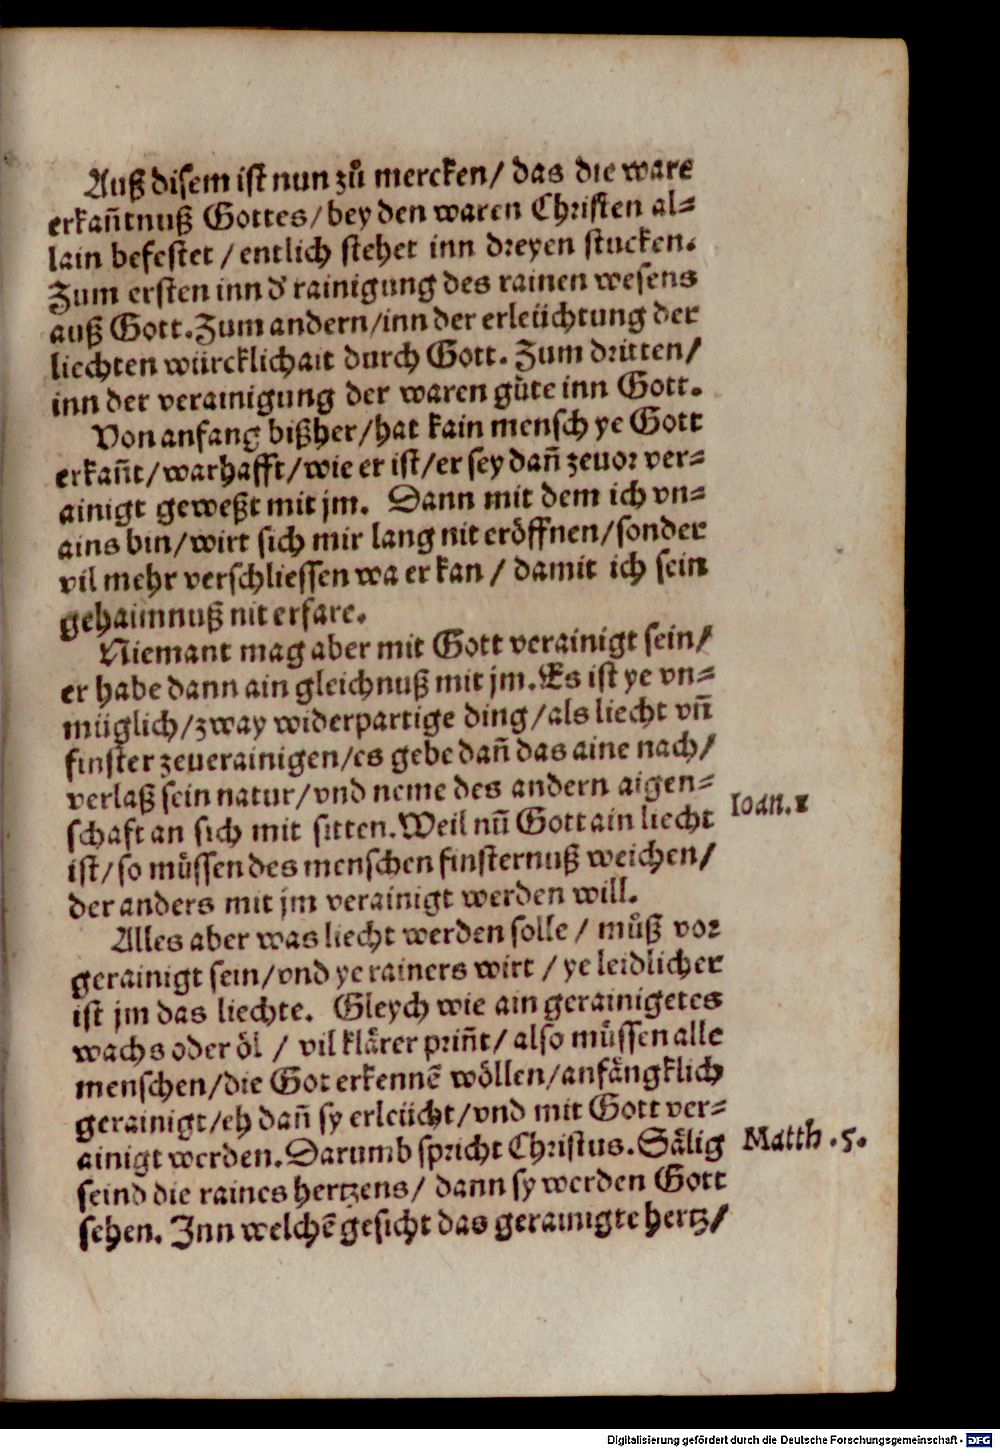 Auß disem ist nun zů mercken/ das die ware
erkañtnuß Gottes/bey den waren Christen al⸗
lain befestet/entlich stehet inn dreyen stucken.
Zum ersten inn d' rainigung des rainen wesens
auß Gott. Zum andern/inn der erleüchtung der
liechten würcklichait durch Gott. Zum dritten/
inn der verainigung der waren gůte inn Gott.
Von anfang bißher/hat kain mensch ye Gott
erkañt/warhafft/wie er ist/er sey dañ zeuor ver⸗
ainigt geweßt mit jm. Dann mit dem ich vn⸗
ains bin/wirt sich mir lang nit eröffnen/sonder
vil mehr verschliessen wa er kan/ damit ich sein
gehaimnuß nit erfare.
Niemant mag aber mit Gott verainigt sein/
er habe dann ain gleichnuß mit jm. Es ist ye vn⸗
müglich/zway widerpartige ding/als liecht vñ
finster zeuerainigen/es gebe dañ das aine nach/
verlaß sein natur/vnd neme des andern aigen⸗
schaft an sich mit sitten. Weil nũ Gott ain liecht
Ioan. 1
ist/so můssen des menschen finsternuß weichen/
der anders mit jm verainigt werden will.
Alles aber was liecht werden solle/ můß vor
gerainigt sein/vnd ye rainers wirt/ye leidlicher
ist jm das liechte. Gleych wie ain gerainigetes
wachs oder öl/ vil klärer priñt/also můssen alle
menschen/die Got erkennẽ wöllen/anfängklich
gerainigt/eh dañ sy erleücht/vnd mit Gott ver⸗
ainigt werden. Darumb spricht Christus. Sälig
Matth. 5.
seind die raines hertzens/ dann sy werden Gott
sehen. Inn welchẽ gesicht das gerainigte hertz/
Digitalisierung gefördert durch die Deutsche Forschungsgemeinschaft - DFG